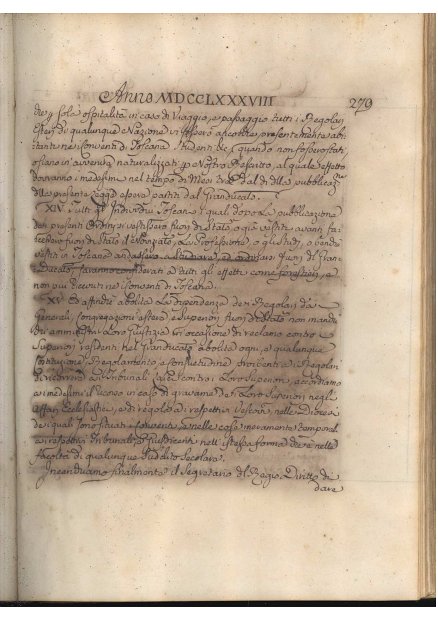 Anno MDCCLXXXVIII 279
die, sola ospitalità in caso di Viaggio, e passaggio tutti i Regolari
Esteri di qualunque Nazione si fossero ascritti, presentemente abi-
tanti nei Conventi di Toscana studenti &c. quando non fossero stati
o siano in avvenire naturalizzati per Nostro Rescritto, al quale effetto
dovranno i medesimi nel tempo di Mesi dal dì della pubblicaz.ne
della presente Legge essere partiti dal Granducato.
XIV. Tutti gl' Individui Toscani i quali dopo la pubblicazione
dei presenti Ordini si vestissero fuori di Stato, o già vestiti avanti fa-
cessero fuori di Stato il Noviziato, la Professione, o gli studj, o benchè
vestiti in Toscana andassero a studiare, ad fuori del Gran-
ducato, saranno considerati a tutti gli effetti come forestieri, e
non più ricevuti nei Conventi di Toscana.
XV. Ed affinchè abolita la dipendenza dei Regolari da
Generali, Congregazioni estere, e Superiori fuori di Stato non manchi
di amministrarsi loro Giustizia in occasione di reclamo contro i
Superiori residenti nel Granducato, abolita ogni, e qualunque
Costituzione, Regolamento, e consuetudine proibente ai Regolari
di ricorrere ai Tribunali Laici contro i loro Superiori, accordiamo
ai medesimi il ricorso in caso di gravame dei loro Superiori negli
Affari Ecclesiastici, e di regola ai rispettivi Vescovi nelle Diocesi
dei quali sono situati i Conventi, e nelle cose meramente temporali
ai respettivi Tribunali, e Giusdicenti nell' istessa forma che è nelle
facoltà di qualunque Suddito Secolare.
Incarichiamo finalmente il Segretario del Regio Diritto di
dare